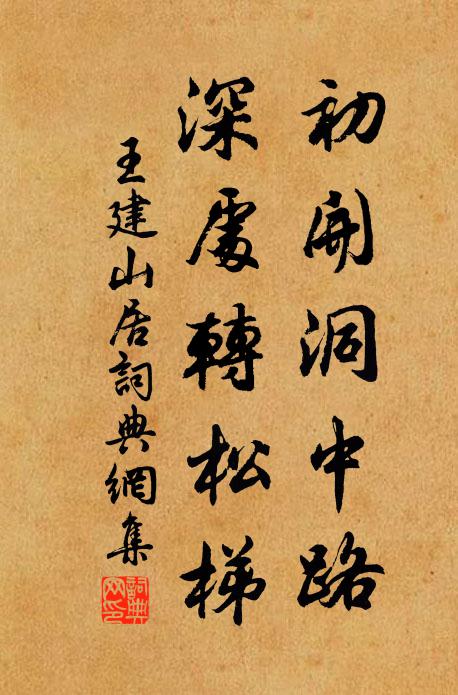 初開洞中路
深處轉松梯
王建山居詞典網集
詞典網印